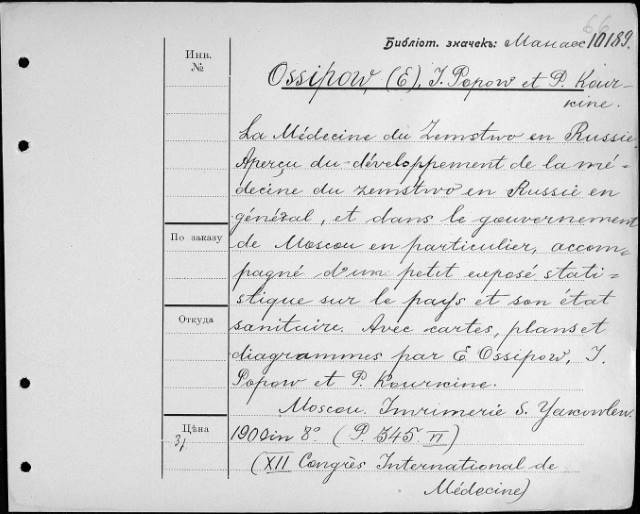 66
Библіот. значекъ: Манаас 10189.
Инв.
№
Ossipow, (E), J. Popow et P. Kour-
kine.
La Médecine du Zemstwo en Russie.
Aperçu du développement de la mé-
decine du zemstwo en Russie en
général, et dans le gouvernement
По заказу
de Moscou en particulier, accom-
pagné d'un petit exposé stati-
stique sur le pays et son état
Откуда
sanitaire. Avec cartes, plans et
diagrammes par E Ossipow, J.
Popow et P. Kourkine.
Moscou. Imrimerie S. Yakovlew.
Цѣна
1900 in 8° (P. 345. VI)
(XII Congrès International de
Médecine)